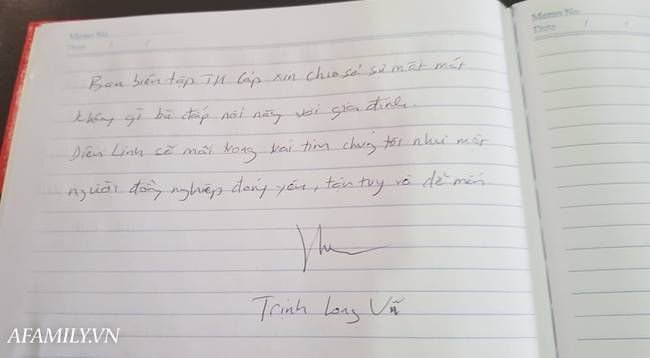 Memo No.
Date / /
Memo No
Date / /
Ban biên tập TH Cáp xin chia sẻ sự mất mát
không gì bù đắp nổi này với gia đình.
Diệu Linh sẽ mãi trong trái tim chúng tôi như một
người đồng nghiệp đáng yêu, tận tụy và dễ mến
Trịnh Long Vũ
AFAMILY.VN